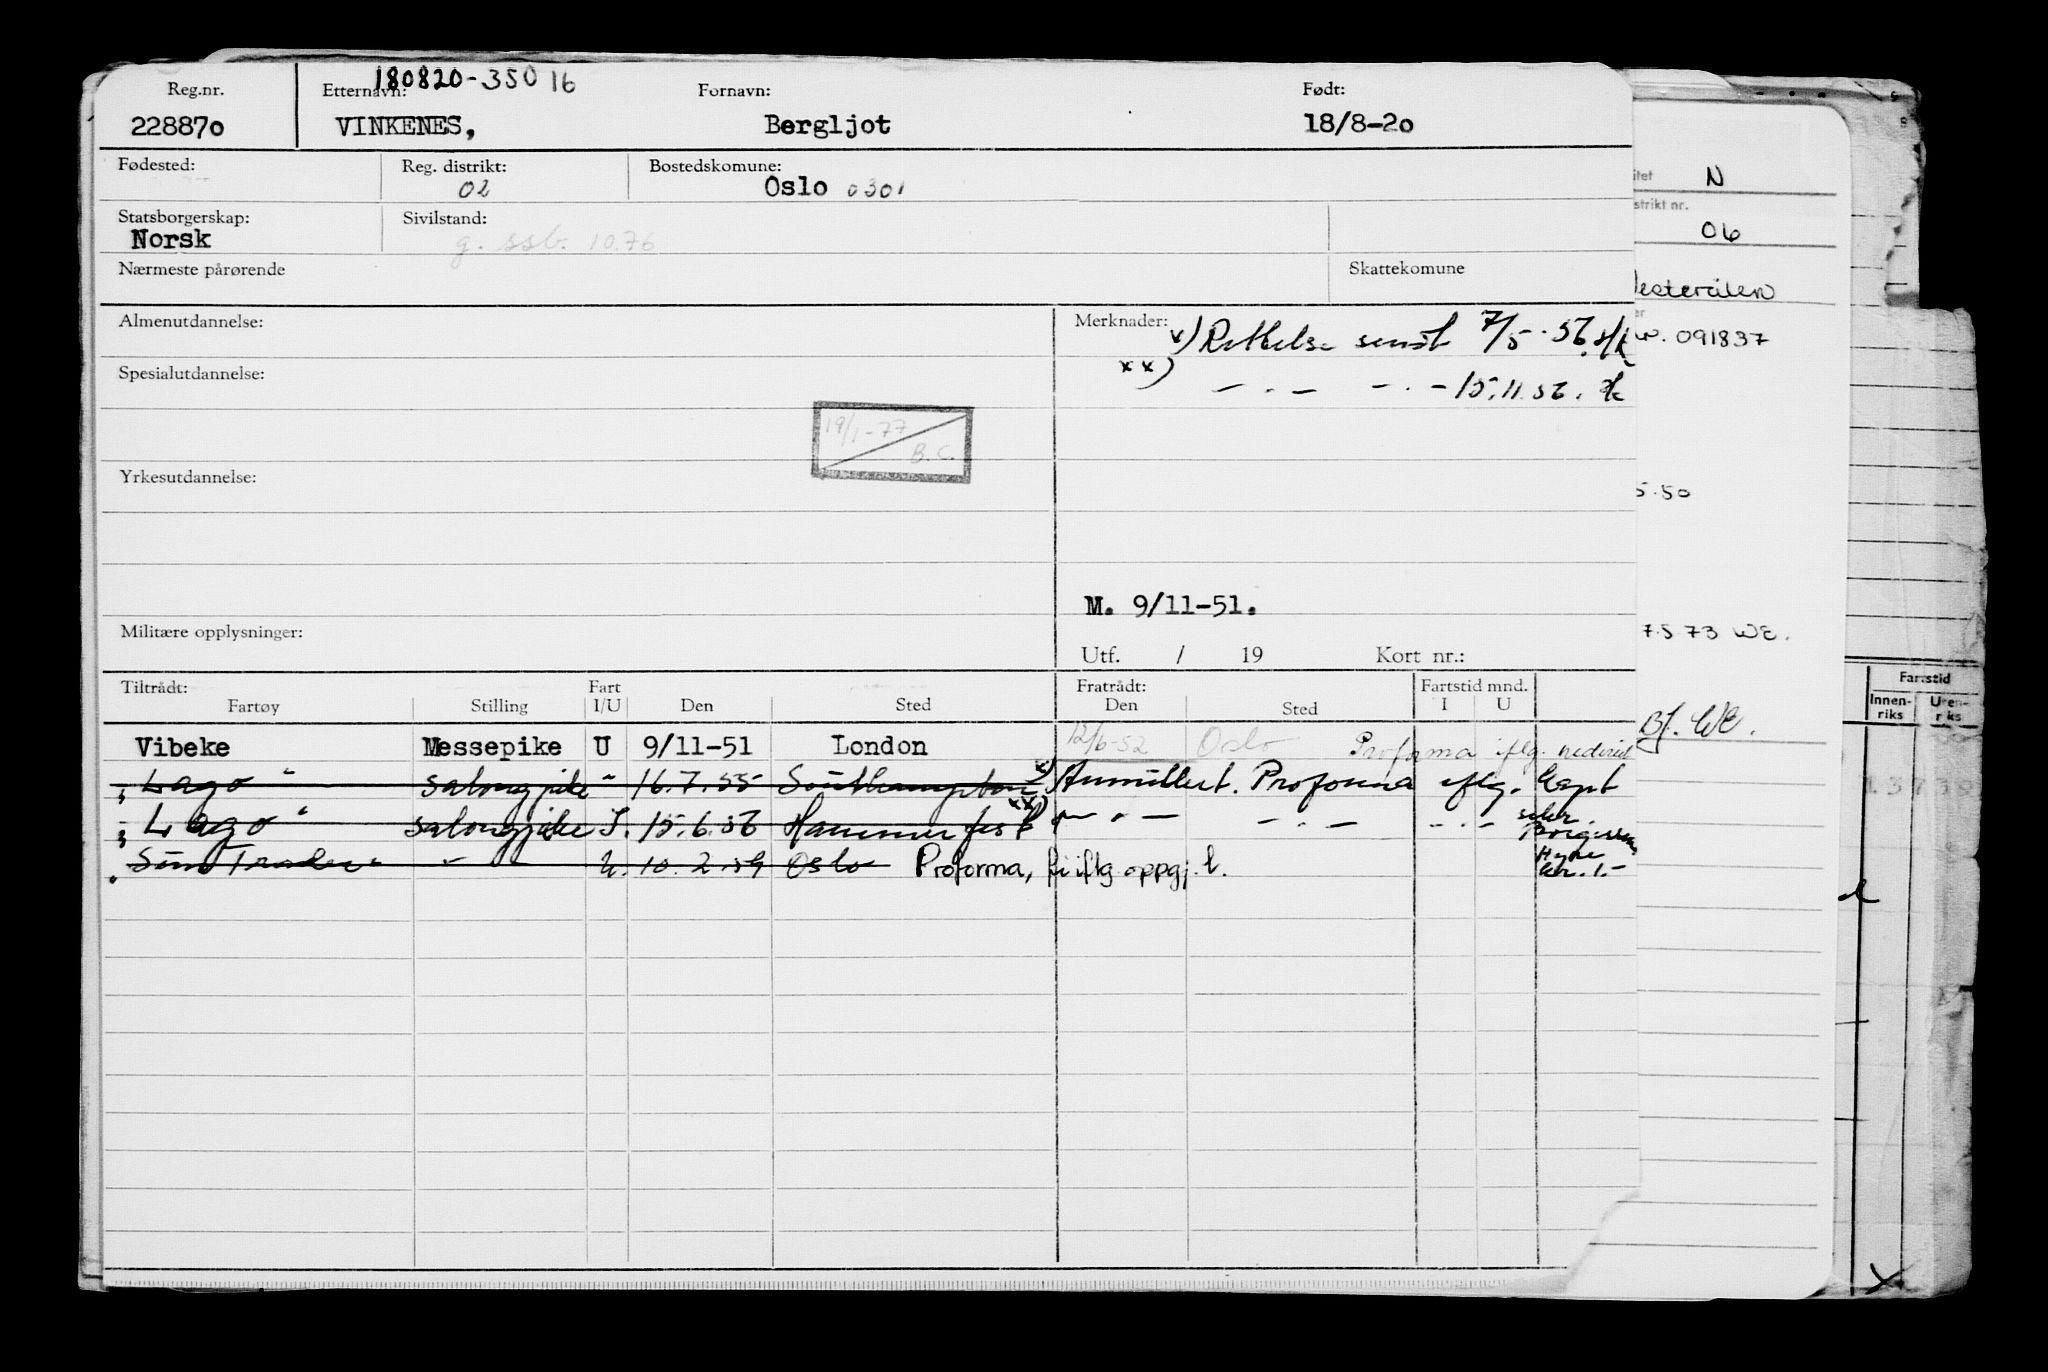 180820-35016
Reg.nr. Etternavn: Fornavn: Født:
228870 VINKENES, Bergljot 18/8-20
Fødested: Reg. distrikt: Bostedskomune:
02 Oslo 0301
Statsborgerskap: Sivilstand:
Norsk g. ssb. 10.76
Nærmeste pårørende Skattekomune
Almenutdannelse: Merknader: x) Rettelse sendt 7/5-56.
Spesialutdannelse: xx) — " — — " — 15.11.56.
19/1-77
B.C.
Yrkesutdannelse:
M. 9/11-51.
Militære opplysninger:
Utf. / 19 Kort nr.:
Tiltrådt: Fart Fratrådt: Fartstid mnd.
Fartøy Stilling I/U Den Sted Den Sted I U
Vibeke Messepike U 9/11-51 London 12/6-52 Oslo Proforma iflg.
"Lago" salongpike " 16.7.55 Southampton x) Annullert. Proforma iflg. Kapt
"Lago" salongpike I. 15.6.56 Hammerfest xx) — " — — " — — " —
"Sun Trader" U. 10.2.59 Oslo Proforma, iflg. oppgj. l.
Hyre
kr. 1.-
N
strikt nr.
06
091837
5.50
7.5 73 WE.
Bf. WE.
Fartstid
Innen-
riks
Uten-
riks